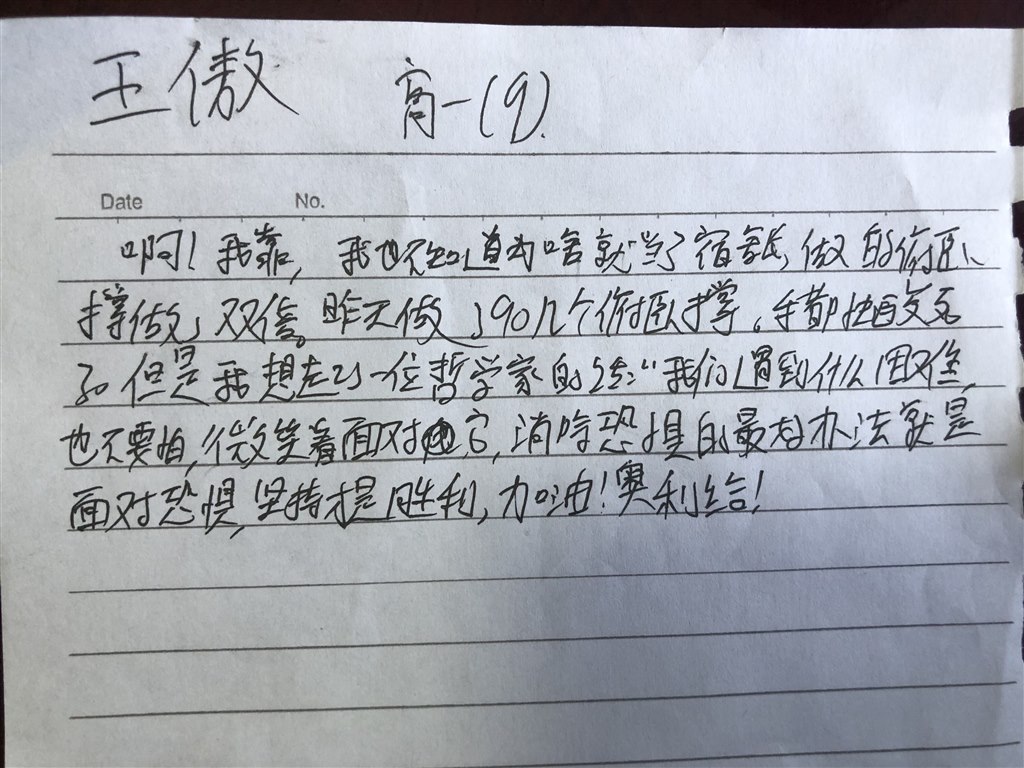 王傲 高一(9).
Date No.
啊!我靠,我也不知道为啥就当了宿舍长,做的俯卧
撑做了双倍。昨天做了90几个俯卧撑。手都快要废了
但是我想起了一位哲学家的话:"我们遇到什么困难,
也不要怕,微笑着面对它,消除恐惧的最好办法就是
面对恐惧,坚持才是胜利,加油!奥利给!